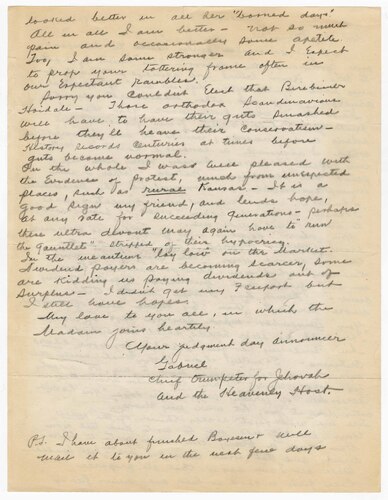 looked better in all her "borned days"
All in all I am better - not so much
pain and occasionally some apetite
Too, I am some stronger and I expect
to prop your tottering frame often in
our expectant rambles.
Sorry you couldnt elect that
- Those orthodox Scandinavians
will have to have their guts smashed
before they'll leave their Conservatism -
History records centuries at times before
guts become normal.
On the whole I was well pleased with
the evidence of protest, much from unexpected
places, such as rural Kansas - It is a
good sign my friend, and lends hope,
at any rate for succeeding generations - perhaps
these ultra devout may again have to run
the "gauntlet" stripped of their hypocrisy.
In the meantime "lay low" on the Market.
Dividend payers are becoming scarcer, some
are kidding us paying dividends out of
Surplus - I didn't get my Freeport but
I still have hopes.
My love to you all, in which the
Madam joins heartily
Your judgment day announcer
Gabriel
Chief trumpeter for Jehovah
and the Heavenly Host.
P.S. I have about finished & will
mail it to you in the next few days